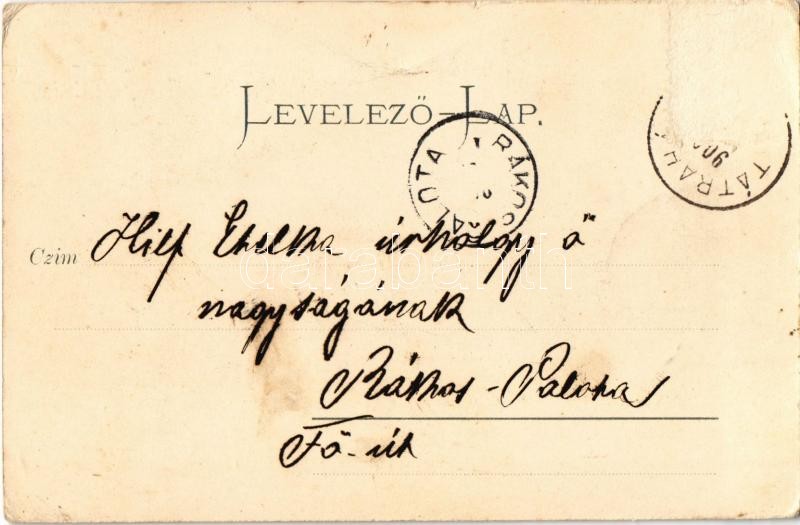 LEVELEZŐ-LAP.
RÁKOS
ALOTA
TÁTRA
900
Czim Hilf Etelka úrhölgy ő
nagyságának
Rákos-Palota
Fő-út
darabanth